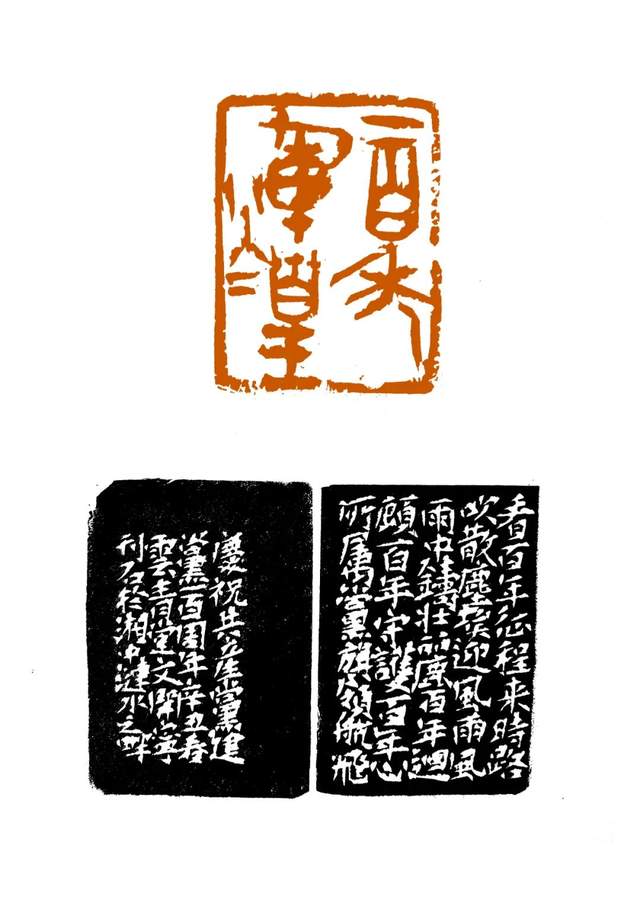 百年
煇煌
看百年征程来時路
吹散塵埃迎風雨風
雨中鑄壯麗百年迴
顧百年守護百年心
所属黨旗領航飛
慶祝共產黨建
黨一百周年辛丑春
刊石於湘中漣水之畔